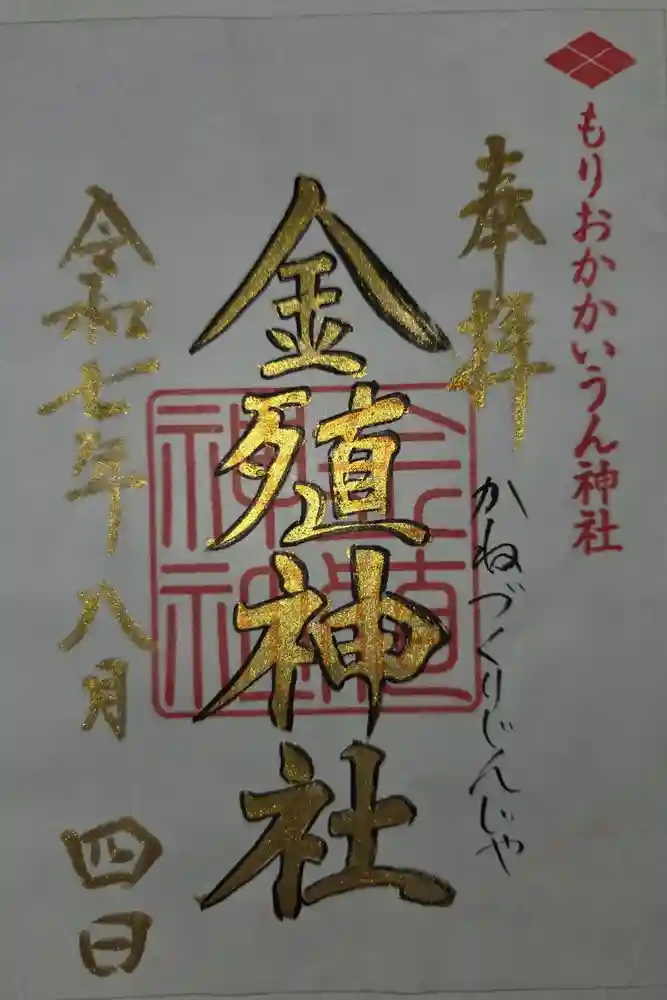 もりおかかいうん神社
奉拝
かねづくりじんじゃ
金殖神社
令和七年八月四日